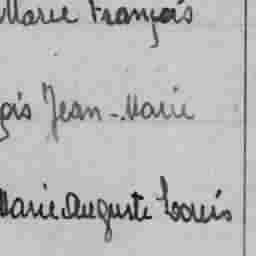 Marie François
çois Jean-Marie
Marie Auguste Louis